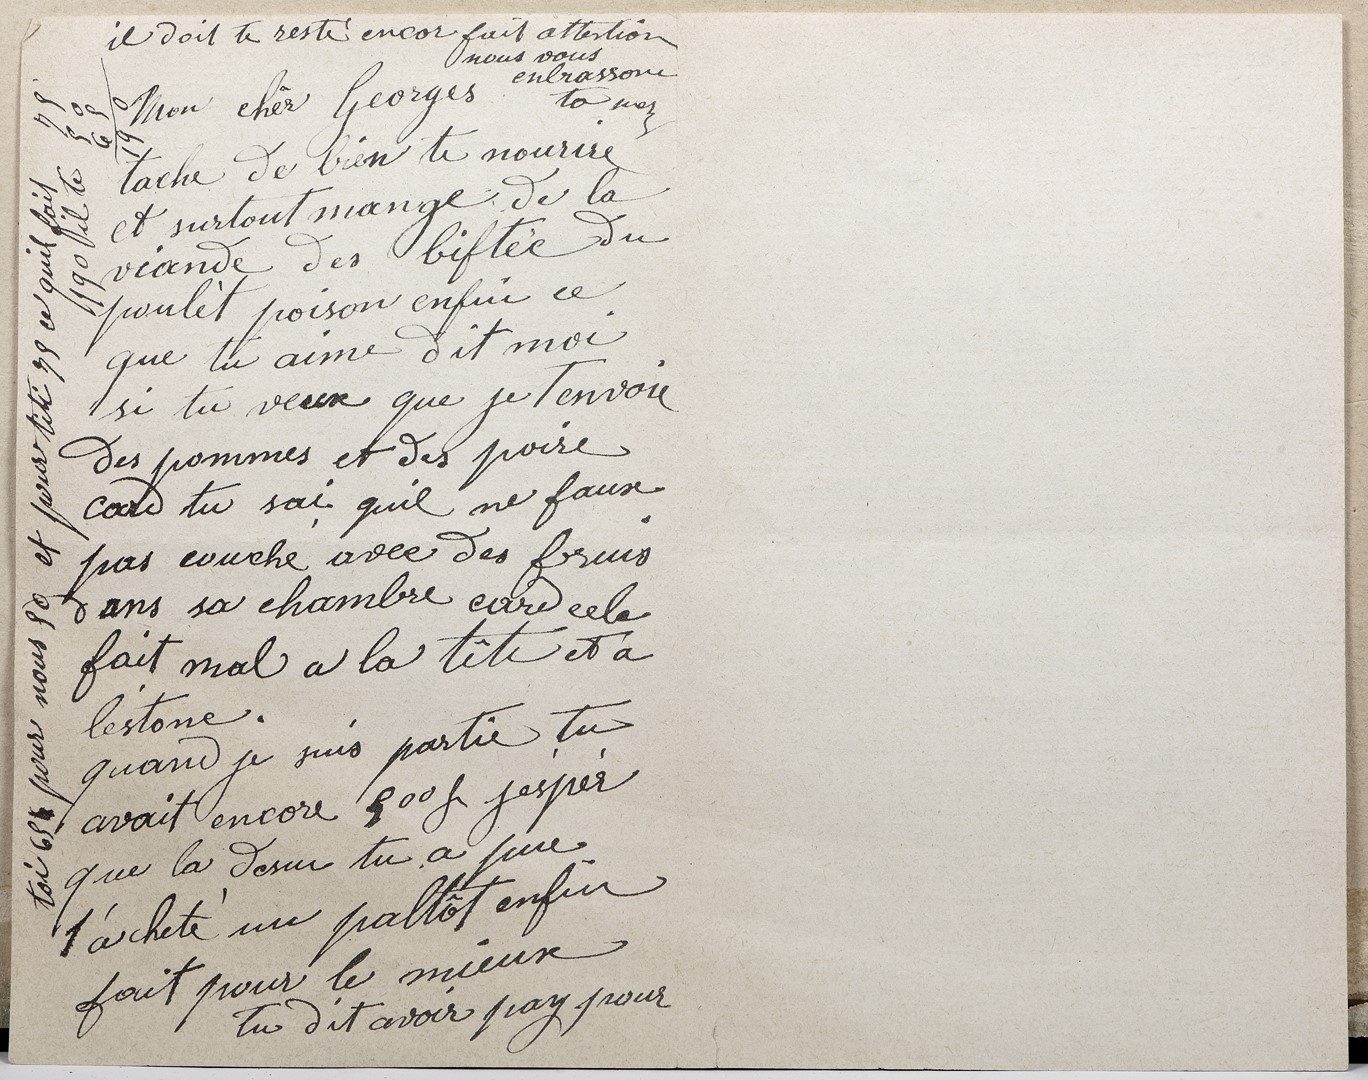 Mon chêr Georges
tache de bien te nourire
et surtout mange de la
viande des biftèe du
poulèt poison enfin ce
que tu aime dit moi
si tu veux que je t'envoie
des pommes et des poire
card tu sai quil ne faux
pas couché avec des fruis
dans sa chambre card cele
fait mal a la tête et a
lestone.
quand je suis partie tu
avait encore 500f jéspér
que la desur tu a pue
t'acheté un paltôt enfin
fait pour le mieux
tu dit avoir pay pour
toi 65f pour nous 50 et pour titi 75 ce quil fait
190 fil te
75
50
65
190
il doit te resté encor fait attention
nous vous
enbrassone
ta mer